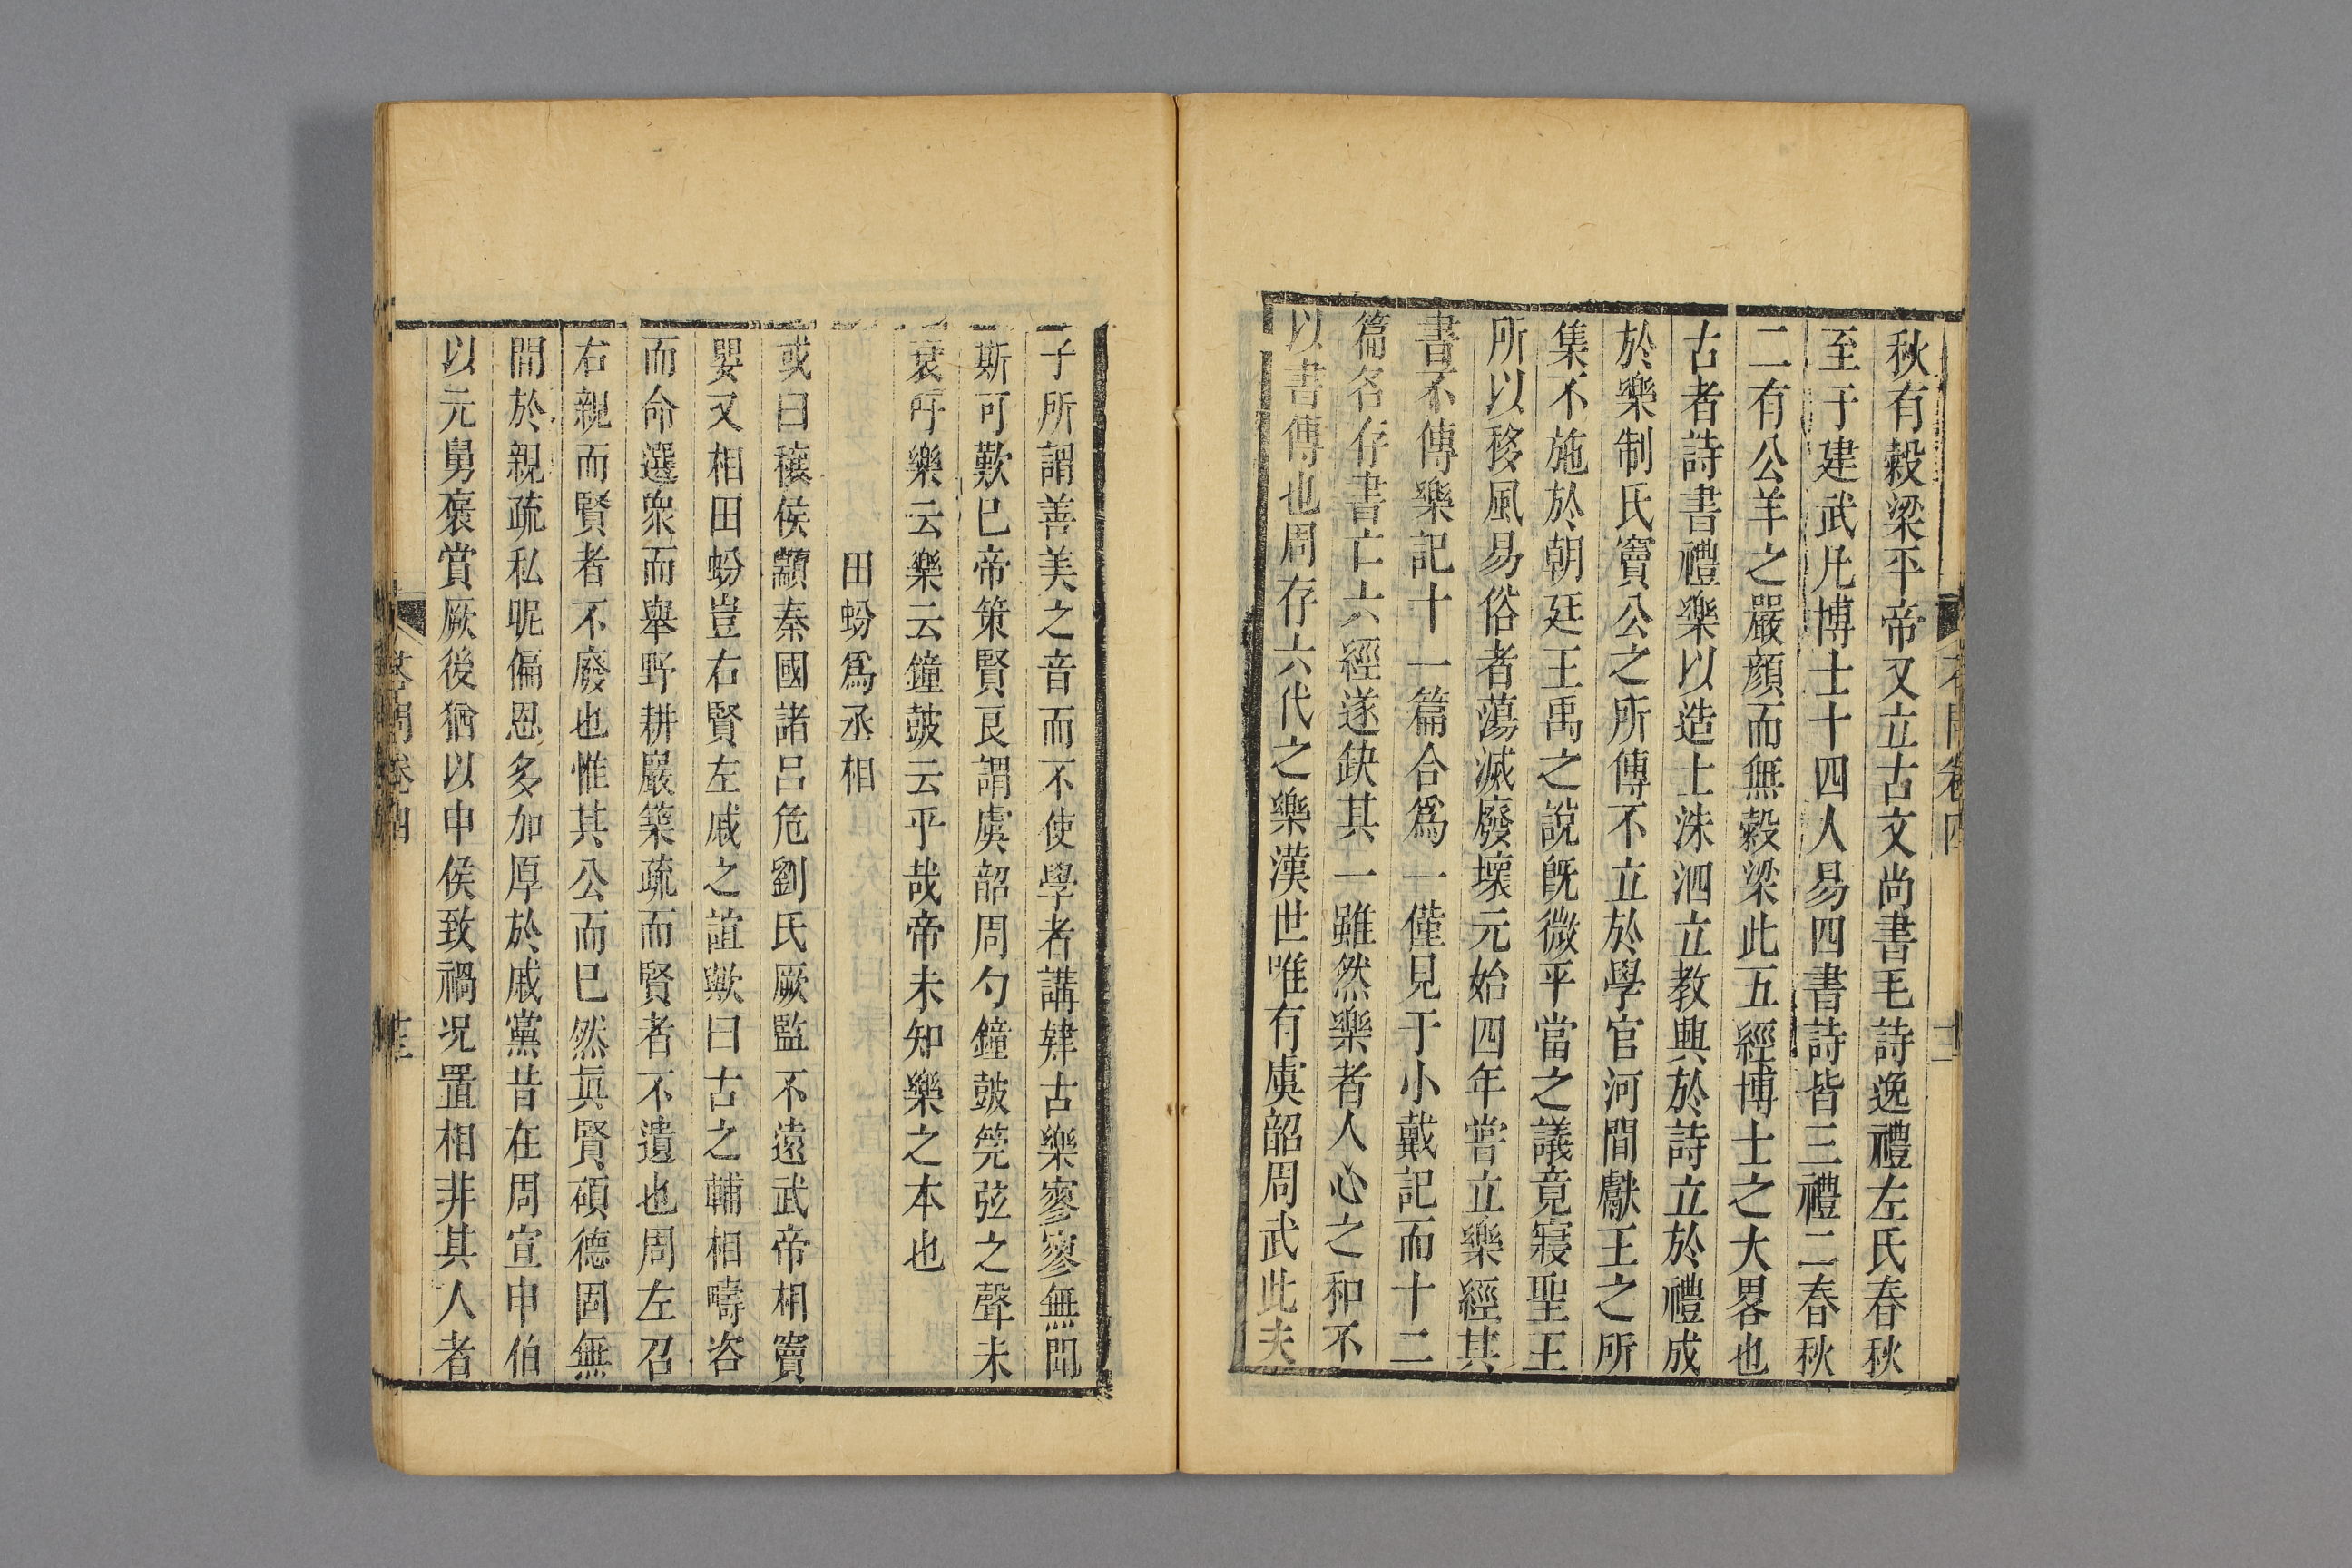 秋有榖梁平帝又立古文尚書毛詩逸禮左氏春秋
至于建武凡博士十四人易四書詩皆三禮二春秋
二有公羊之嚴顔而無榖梁此五經博士之大畧也
古者詩書禮樂以造士洙泗立教興於詩立於禮成
於樂制氏竇公之所傳不立於學官河間獻王之所
集不施於朝廷王禹之說旣微平當之議竟寢聖王
所以移風易俗者蕩滅廢壞元始四年嘗立樂經其
書不傳樂記十一篇合爲一僅見于小戴記而十二
篇名存書亡六經遂缺其一雖然樂者人心之和不
以書傳也周存六代之樂漢世唯有虞韶周武此夫
子所謂善美之音而不使學者講肄古樂寥寥無聞
斯可歎已帝策賢良謂虞韶周勺鐘鼓筦弦之聲未
衰吁樂云樂云鐘鼓云乎哉帝未知樂之本也
田蚡爲丞相
或曰穰侯顓秦國諸呂危劉氏厥監不遠武帝相竇
嬰又相田蚡豈右賢左戚之誼歟曰古之輔相疇咨
而命選衆而舉野耕巖築疏而賢者不遺也周左召
右親而賢者不廢也惟其公而已然眞賢碩德固無
間於親疏私昵偏恩多加厚於戚黨昔在周宣申伯
以元舅褒賞厥後猶以申侯致禍況置相非其人者
答問卷四